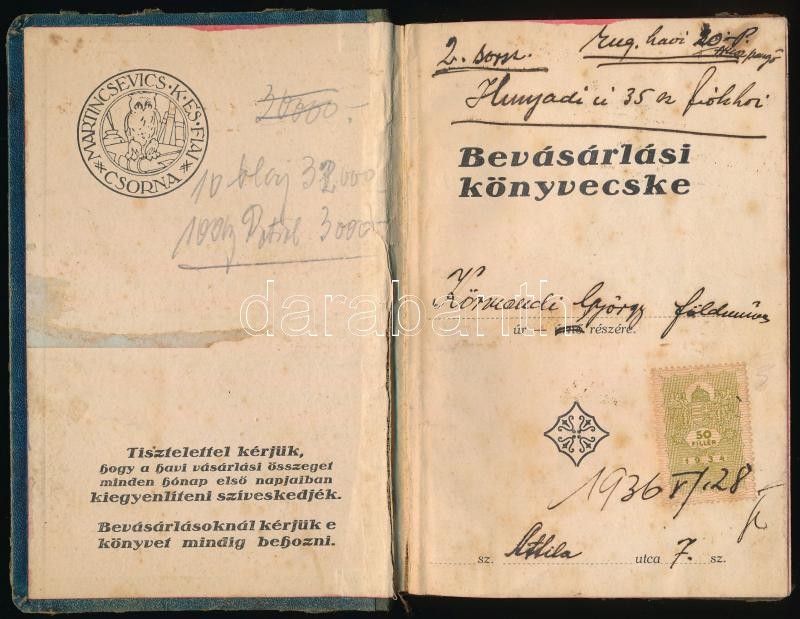 MARTINCSEVICS·K·ÉS·FIAI
CSORNA
30000.-
10 32000.-
100 3000.-
Tisztelettel kérjük,
hogy a havi vásárlási összeget
minden hónap első napjaiban
kiegyenlíteni szíveskedjék.
Bevásárlásoknál kérjük e
könyvet mindig behozni.
2. sorsz. havi 20.-P.
Hunyadi u 35 sz
Bevásárlási
könyvecske
Körmendi György földműves
úr— részére.
50
FILLÉR
1934
1936 V/28
sz. Attila utca 7. sz.
darabanth